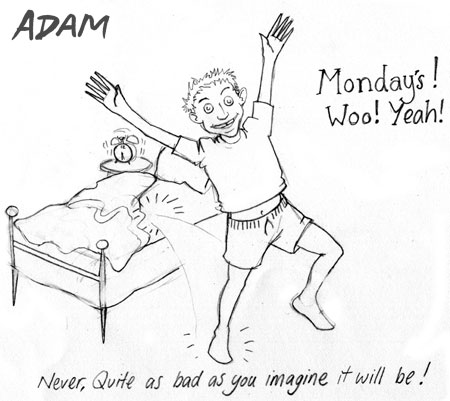 ADAM
Monday's!
Woo! Yeah!
Never, Quite as bad as you imagine it will be!